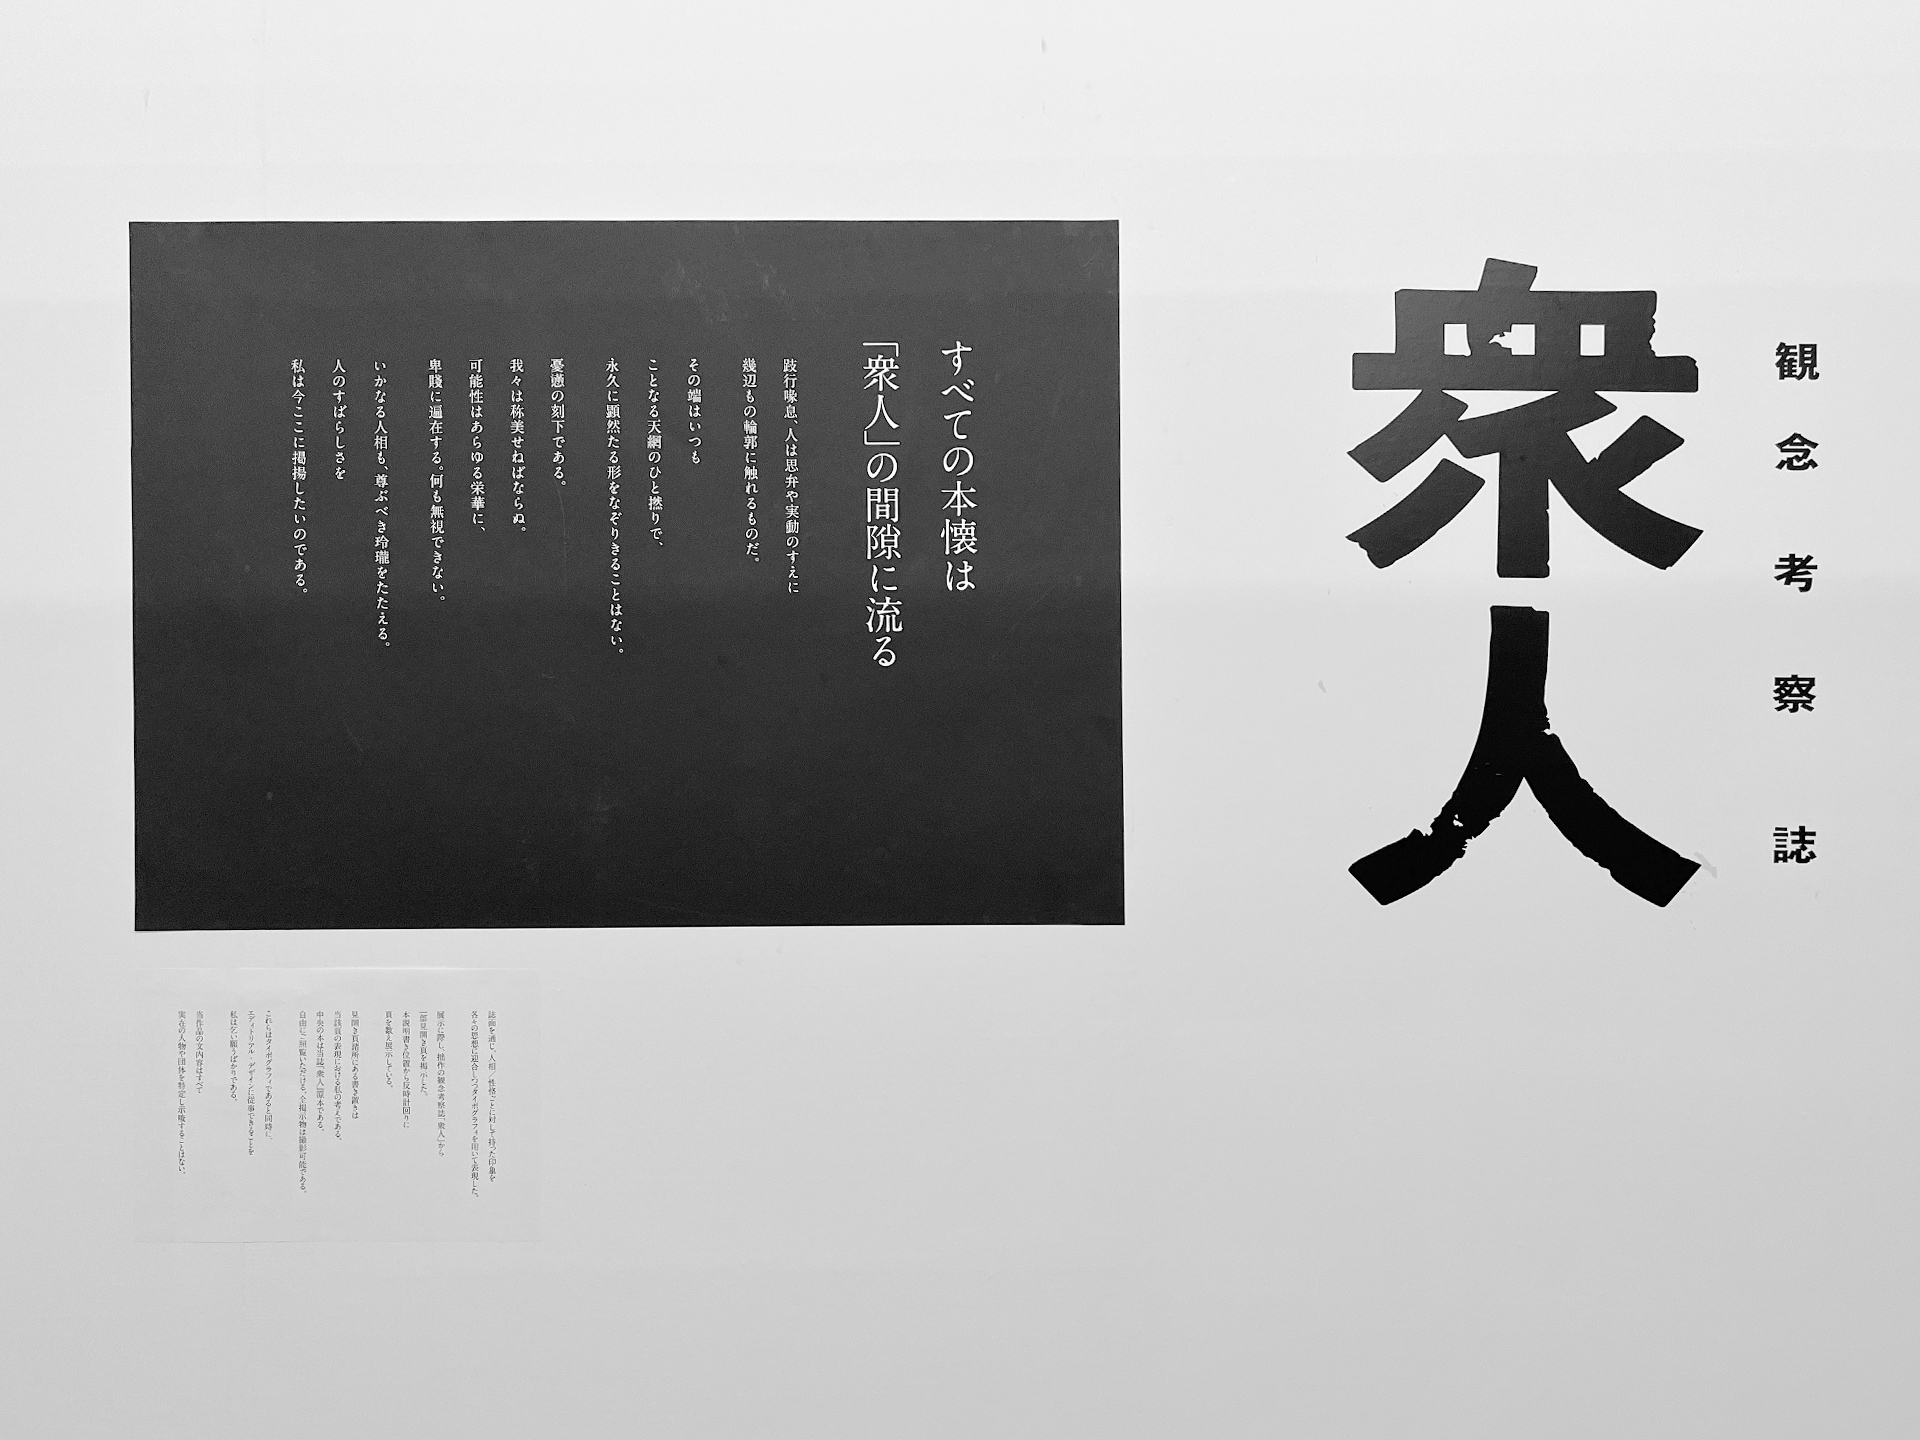 観念考察誌
衆人
すべての本懐は
「衆人」の間隙に流る
跂行喙息、人は思弁や実動のすえに
幾辺もの輪郭に触れるものだ。
その端はいつも
ことなる天網のひと撚りで、
永久に顕然たる形をなぞりきることはない。
憂懣の刻下である。
我々は称美せねばならぬ。
可能性はあらゆる栄華に、
卑賤に遍在する。何も無視できない。
いかなる人相も、尊ぶべき玲瓏をたたえる。
人のすばらしさを
私は今ここに掲揚したいのである。
誌面を通じ、人相／性格ごとに対して持った印象を
各々の思想に迎合しつつタイポグラフィを用いて表現した。
展示に際し、拙作の観念考察誌「衆人」から
一部見開き頁を掲示した。
本説明書き位置から反時計回りに
頁を数え展示している。
見開き頁諸所にある書き置きは
当該頁の表現における私の考えである。
中央の本は当誌「衆人」原本である。
自由にご照覧いただける。全掲示物は撮影可能である。
これらはタイポグラフィであると同時に、
エディトリアル・デザインに従事できることを
私は乞い願うばかりである。
当作品の文内容はすべて
実在の人物や団体を特定し示唆することはない。